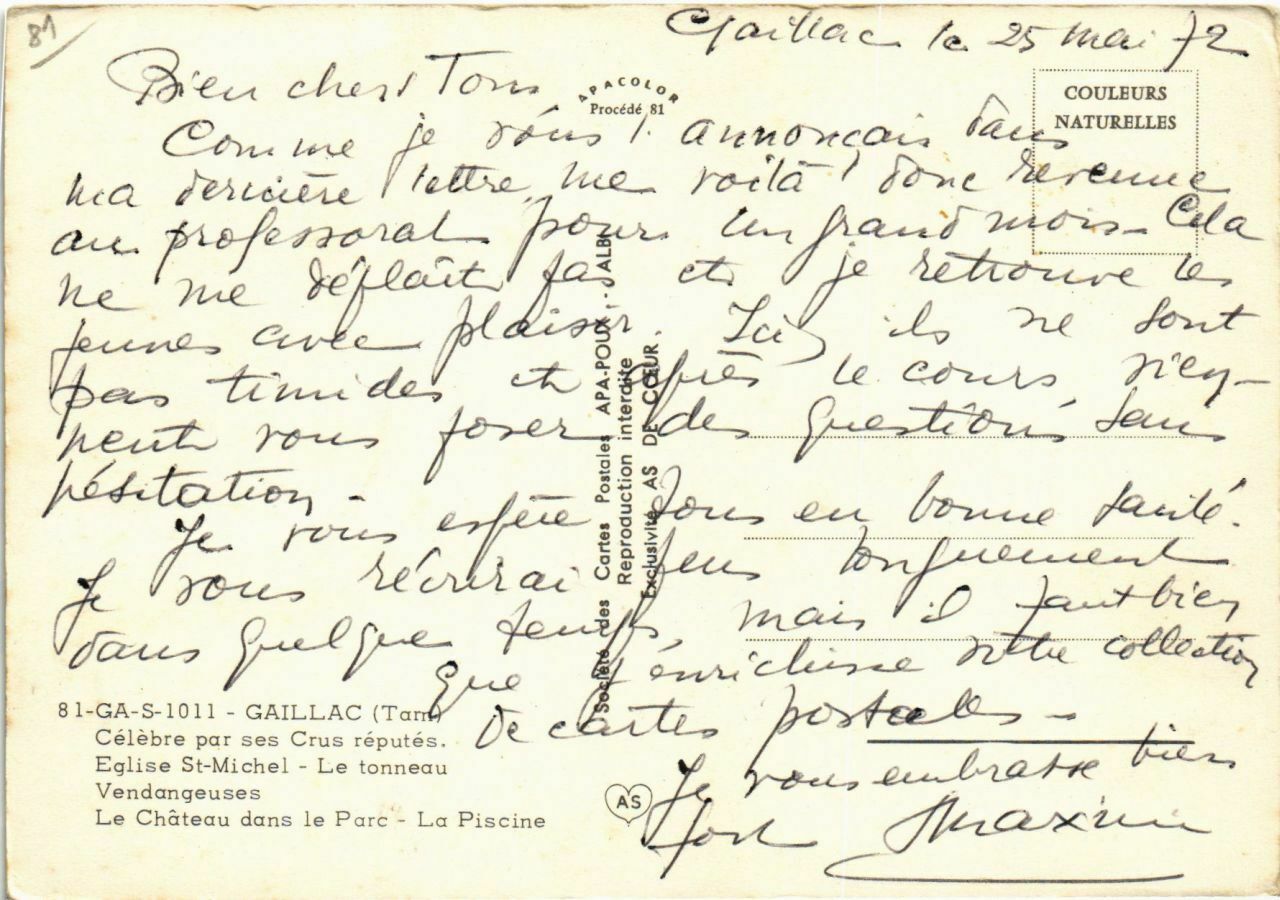 81
Gaillac le 25 mai 72
Bien chers Tous
APACOLOR
Procédé 81
COULEURS
NATURELLES
Comme je vous l'annonçais dans
ma dernière lettre, me voilà donc revenue
au professorat pour un grand mois - Cela
ne me déplait pas et je retrouve les
jeunes avec plaisir. Ici, ils ne sont
pas timides et après le cours vien-
nent vous poser des questions sans
hésitation -
Je vous espère tous en bonne santé.
Je vous récrirai plus longuement
dans quelque temps, mais il faut bien
que j'enrichisse votre collection
de cartes postales -
Je vous embrasse bien
fort
Société des Cartes Postales APA-POUX - ALBI
Reproduction interdite
Exclusivité AS DE CŒUR.
81-GA-S-1011 - GAILLAC (Tarn)
Célèbre par ses Crus réputés.
Eglise St-Michel - Le tonneau
Vendangeuses
Le Château dans le Parc - La Piscine
AS